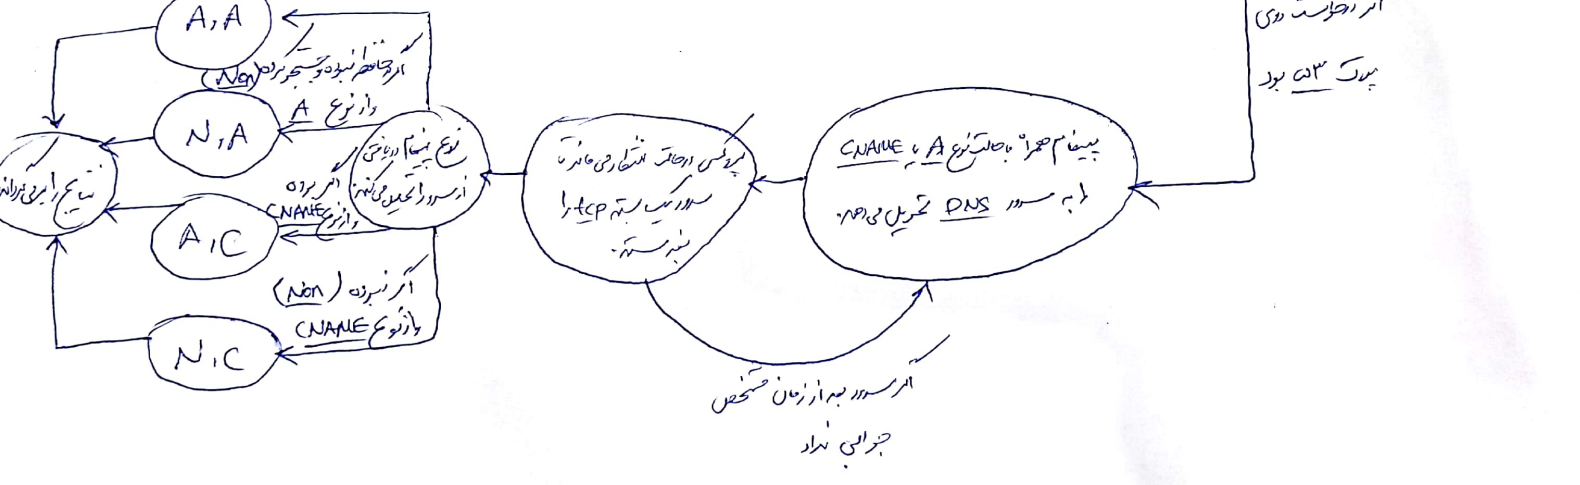 اگر درخواست روی
پورت ۵۳ بود
پیغام همراه با حالت نوع A یا CNAME
را به سرور DNS تحویل می‌دهد.
پراکسی در حالت انتظار می‌ماند تا
سرور یک بسته tcp را
بفرستد.
اگر سرور بعد از زمان مشخص
جوابی نداد
نوع پیغام دریافتی
از سرور را تحلیل می‌کند.
A,A
(Non)
و از نوع A
N,A
اگر بوده
و از نوع CNAME
A,C
اگر نبوده (Non)
و از نوع CNAME
N,C
نتایج را برمی‌گرداند